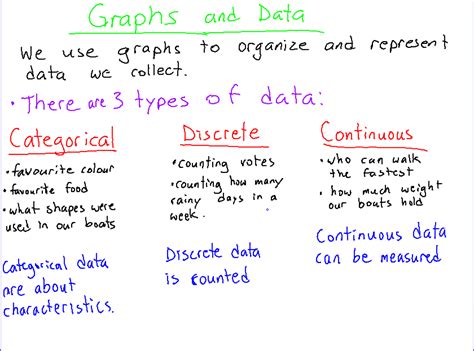 Graphs and Data
We use graphs to organize and represent
data we collect.
• There are 3 types of data:
Categorical
• favourite colour
• favourite food
• what shapes were
used in our boats
Categorical data
are about
characteristics.
Discrete
• counting votes
• counting how many
rainy days in a
week.
Discrete data
is counted
Continuous
• who can walk
the fastest
• how much weight
our boats hold
Continuous data
can be measured